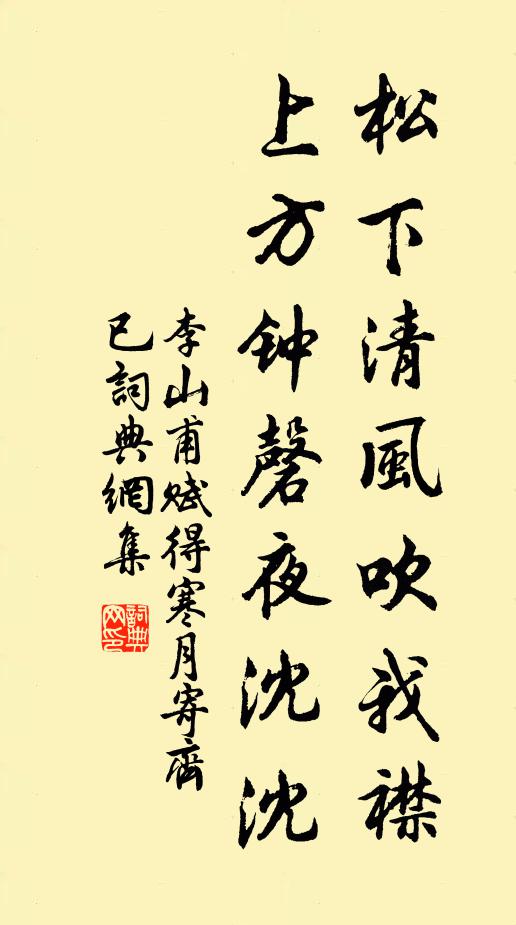 松下清風吹我襟
上方钟磬夜沈沈
李山甫赋得寒月寄齊
已詞典網集
詞典网印